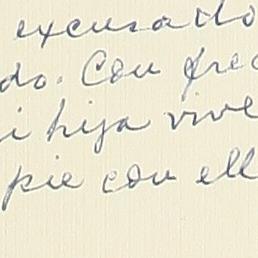 excusado
do. Con frec
i hija vive
pie con ell